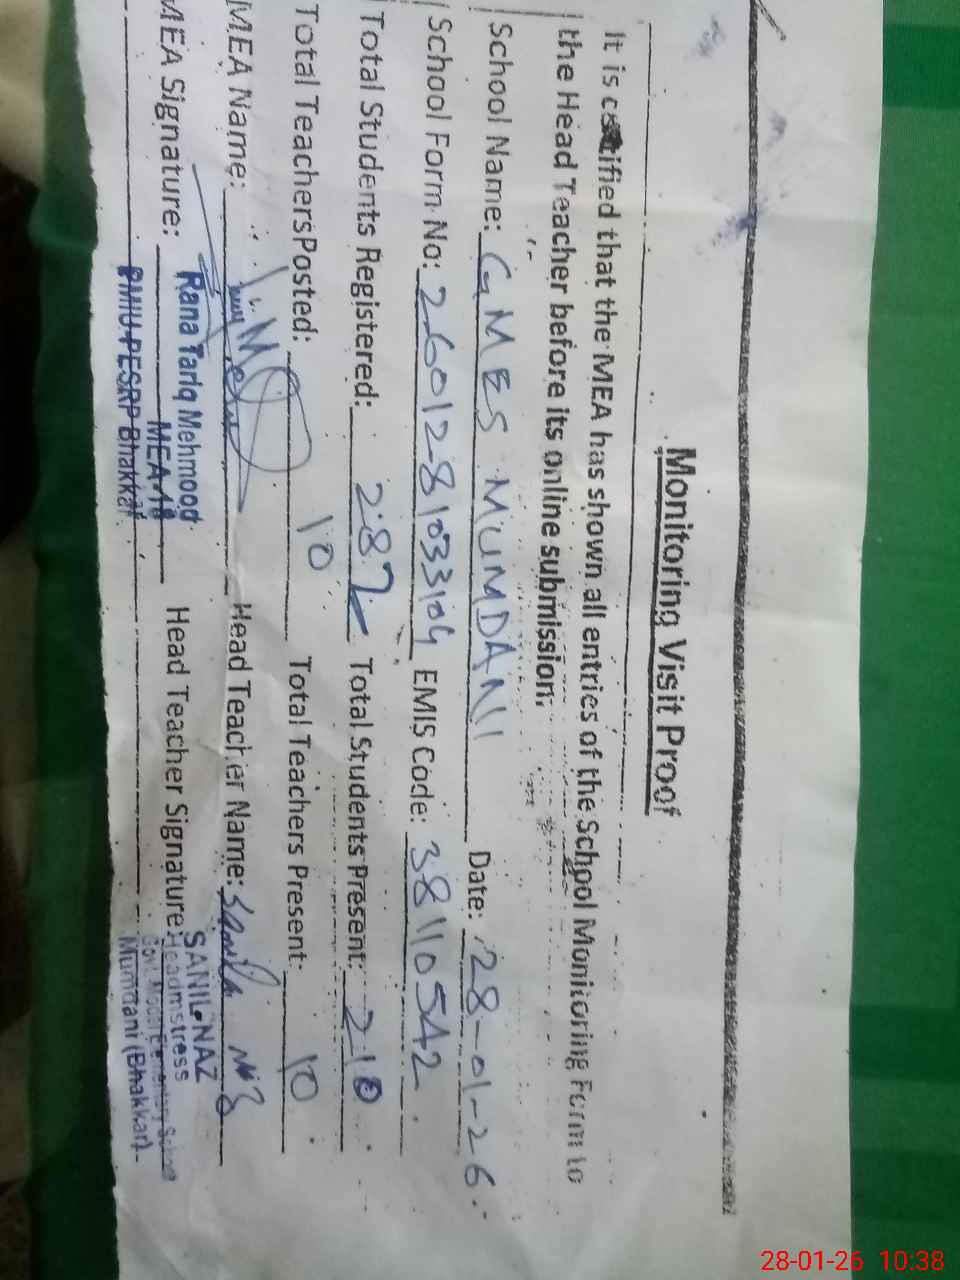 Monitoring Visit Proof
It is certified that the MEA has shown all entries of the School Monitoring Form to
the Head Teacher before its online submission.
School Name: GMES MUMDANI Date: 28-01-26
School Form No: 2601281033104 EMIS Code: 38110542
Total Students Registered: 287 Total Students Present: 210
Total Teachers Posted: 10 Total Teachers Present: 10
MEA Name: Head Teacher Name: Sanila Naz
MEA Signature: Head Teacher Signature:
Rana Tariq Mehmood
MEA-18
PMIU-PESRP Bhakkar
SANILA NAZ
Headmistress
Govt. Model Elementary School
Mumdani (Bhakkar)
28-01-26 10:38